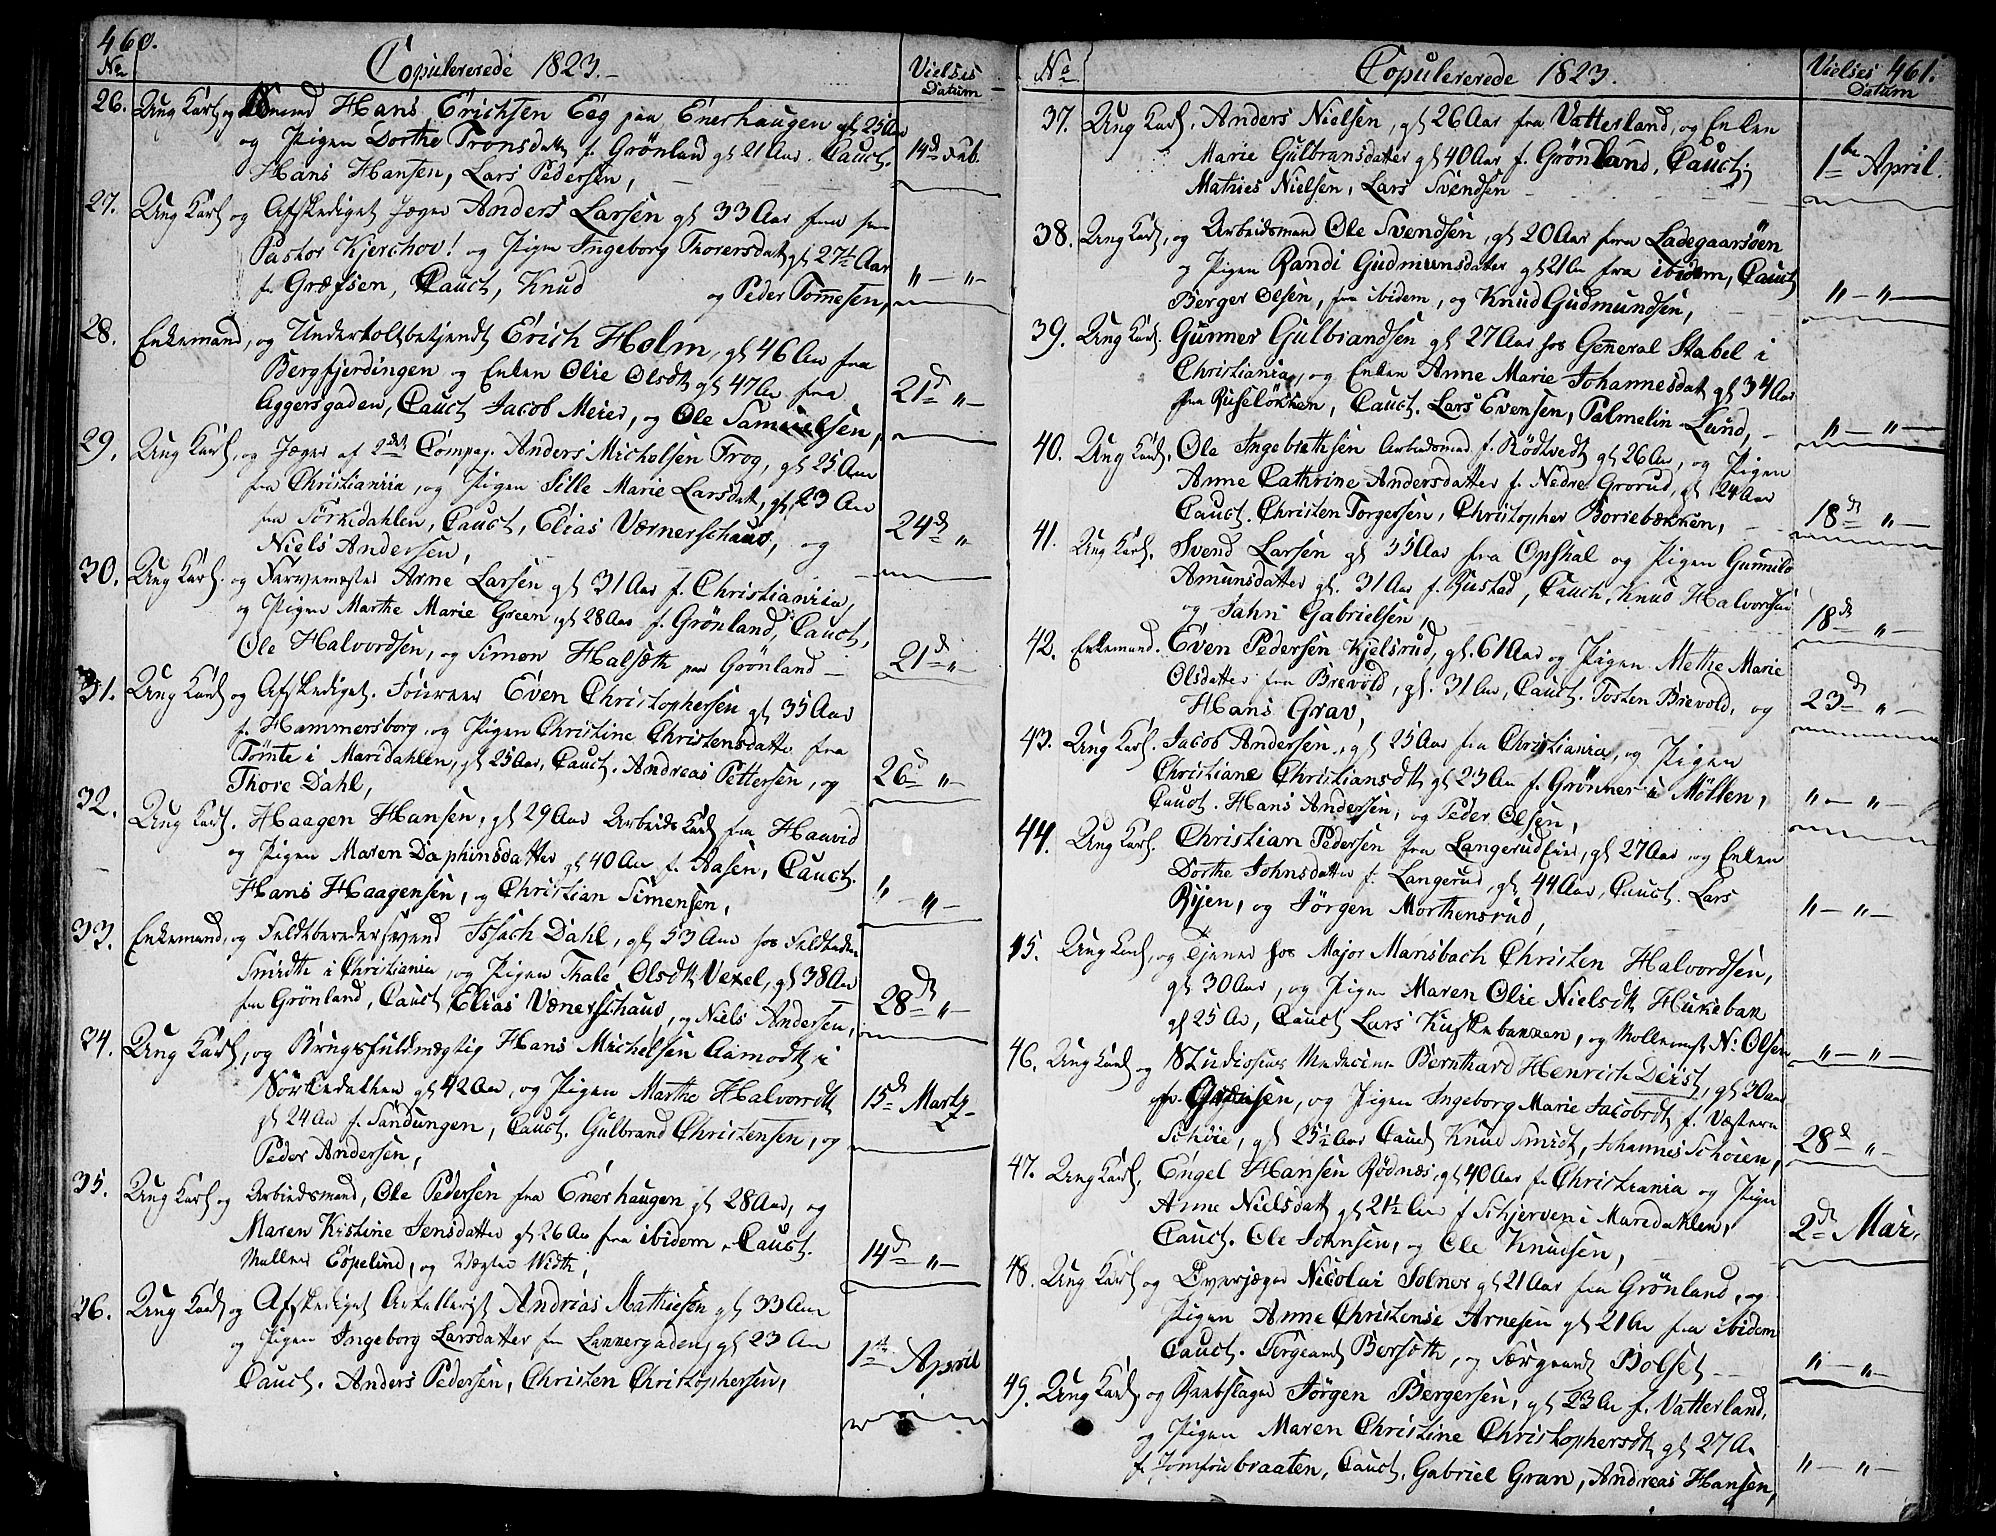 460.
No
Copulererede 1823.
Vielses
Datum
26. Ung Karl og Hans Erichsen Eeg paa Enerhaugen gl 25 Aar
og Pigen Dorthe Tronsdatt f. Grönland gl 21 Aar. Cauct.
Hans Hansen, Lars Pedersen,
14d Feb.
27. Ung Karl og Afskediget Jæger Anders Larsen gl 33 Aar fra
Pastor Kjerchov! og Pigen Ingeborg Thorersdat gl 27½ Aar
f. Græfsen, Cauct, Knud og Peder Tommesen,
" — "
28. Enkemand, og Undertoldbetjendt Erich Holm, gl 46 Aar fra
Bergfjerdingen og Enken Olie Olsdt gl 47 Aar fra
Aggersgaden, Cauct Jacob Meier, og Ole Samuelsen,
21d " —
29. Ung Karl, og Jæger af 2det Compag. Anders Michelsen Frog, gl 25 Aar
fra Christiania, og Pigen Sille Marie Larsdatt, gl 23 Aar
fra Sörkedahlen, Cauct, Elias Værnerschaus, og
Niels Andersen,
24d "
30. Ung Karl. og Farvemester Arne Larsen gl 31 Aar f. Christiania,
og Pigen Marthe Marie Green, gl 28 Aar f. Grönland, Cauct,
Ole Halvordsen, og Simon Halsæth paa Grönland —
21d " —
31. Ung Karl og Afskediget. Fourer Even Christophersen gl 35 Aar
f. Hammersborg, og Pigen Christine Christensdatter fra
Tömte i Maridahlen, gl 25 Aar, Cauct. Andreas Pettersen, og
Thore Dahl,
26d " —
32. Ung Karl. Haagen Hansen, gl 29 Aar Arbeids Karl fra Haavid
og Pigen Maren Daphinsdatter gl 40 Aar f. Aasen, Cauct.
Hans Haagensen, og Christian Simensen,
" — " —
33. Enkemand, og Feldtberedersvend Issach Dahl, gl 53 Aar hos Feldbeder
Smidth i Christiania, og Pigen Thale Olsdtt Vexel, gl 38 Aar
fra Grönland, Cauct Elias Vænerschaus, og Niels Andersen,
28d " —
34. Ung Karl, og Brugsfuldmægtig Hans Michelsen Aamodt i
Sörkedalhen gl 42 Aar, og Pigen Marthe Halvorsdt
gl 24 Aar f. Sandungen, Cauct. Gulbrand Christensen, og
Peder Andersen,
15d Martz —
35. Ung Karl og Arbeidsmand, Ole Pedersen fra Enerhaugen gl 28 Aar, og
Maren Kistine Jensdatter gl 26 Aar fra ibidem, Cauct.
Møller Espelind, og Vægter Width,
14d " —
36. Ung Karl og Afskediget Artellerist Andrias Mathiesen gl 33 Aar
og Pigen Ingeborg Larsdatter fra Lammersgaden, gl 23 Aar
Cauct. Anders Pedersen, Christen Christophersen,
1ste April
No
Copulererede 1823.
Vielses 461.
Datum
37. Ung Karl. Anders Nielsen, gl 26 Aar fra Vatterland, og Enken
Marie Gulbransdatter gl 40 Aar f. Grönland, Cauct,
Mathies Nielsen, Lars Svendsen
1te April.
38. Ung Karl, og Arbeidsmand Ole Svendsen, gl 20 Aar fra Ladegaarsöen
og Pigen Randi Gudmunsdatter gl 21 Aar fra ibidem, Cauct
Berger Olsen, fra ibidem, og Knud Gudmundsen,
" — " —
39. Ung Karl. Gunner Gulbrandsen gl 27 Aar hos General Stabel i
Christiania, og Enken Anne Marie Johannesdat gl 34 Aar
fra Ruselökken, Cauct. Lars Evensen, Palmelin Lund, —
" — " —
40. Ung Karl. Ole Ingebrethsen Arbeidsmand f. Rödtvedt gl 26 Aar, og Pigen
Anne Cathrine Andersdatter f. Nedre Grorud, gl 24 Aar
Cauct. Christen Torgersen, Christopher Boriebækken,
18d " —
41. Ung Karl. Svend Larsen gl 35 Aar fra Opshal og Pigen Gunnild
Amunsdatter gl. 31 Aar f. Rustad, Cauct, Knud Halvordsen
og Jahn Gabrielsen,
18d " —
42. Enkemand. Even Pedersen Kjelsrud, gl. 61 Aar og Pigen Methe Marie
Olsdatter fra Brevold, gl. 31 Aar, Cauct. Tosten Brevold, og
Hans Grav,
23d " —
43. Ung Karl. Jacob Andersen, gl 25 Aar fra Christiania, og Pigen
Christiane Christiansdtt gl 23 Aar f. Grönner Möllen,
Cauct. Hans Andersen, og Peder Olsen,
" — " —
44. Ung Karl. Christian Pedersen fra Langerud eie, gl 27 Aar, og Enken
Dorthe Johnsdatter f. Langerud, gl 44 Aar, Cauct. Lars
Ryen, og Jörgen Morthensrud,
" — " —
45. Ung Karl, og Tjener hos Major Mansbach Christen Halvordsen,
gl 30 Aar, og Pigen Maren Olie Nielsdtt Hukeban
gl 25 Aar, Cauct Lars Kuskebannen, og Mollemst N: Olsen
" — " —
46. Ung Karl og Studiosus Medecine Bernthard Henrich Deist, gl 30 Aar
fr. og Pigen Ingeborg Marie Jacobsdt f. Væstern
Schöie, gl 25½ Aar Cauct Knud Smidt, Johannes Schöien,
28d " —
47. Ung Karl. Engel Hansen Rödnæs, gl 40 Aar f. Christiania og Pigen
Anne Nielsdatt gl 21½ Aar f Schjerven i Maredahlen,
Cauct. Ole Johnsen, og Ole Knudsen,
2d Mai.
48. Ung Karl og Overjæger Nicolai Solner gl 21 Aar fra Grönland, og
Pigen Anne Christense Arnesen gl 21 Aar fra ibidem
Cauct. Sergeant Bersöth, og Sergeant Bolset —
" — " —
49. Ung Karl, og Reebslager Jörgen Bergersen, gl 23 Aar f. Vatterland,
og Pigen Maren Christine Christophersdtt gl 27 A.
f. Jomfrubraaten, Cauct. Gabriel Gran, Andreas Hansen,
" — " —